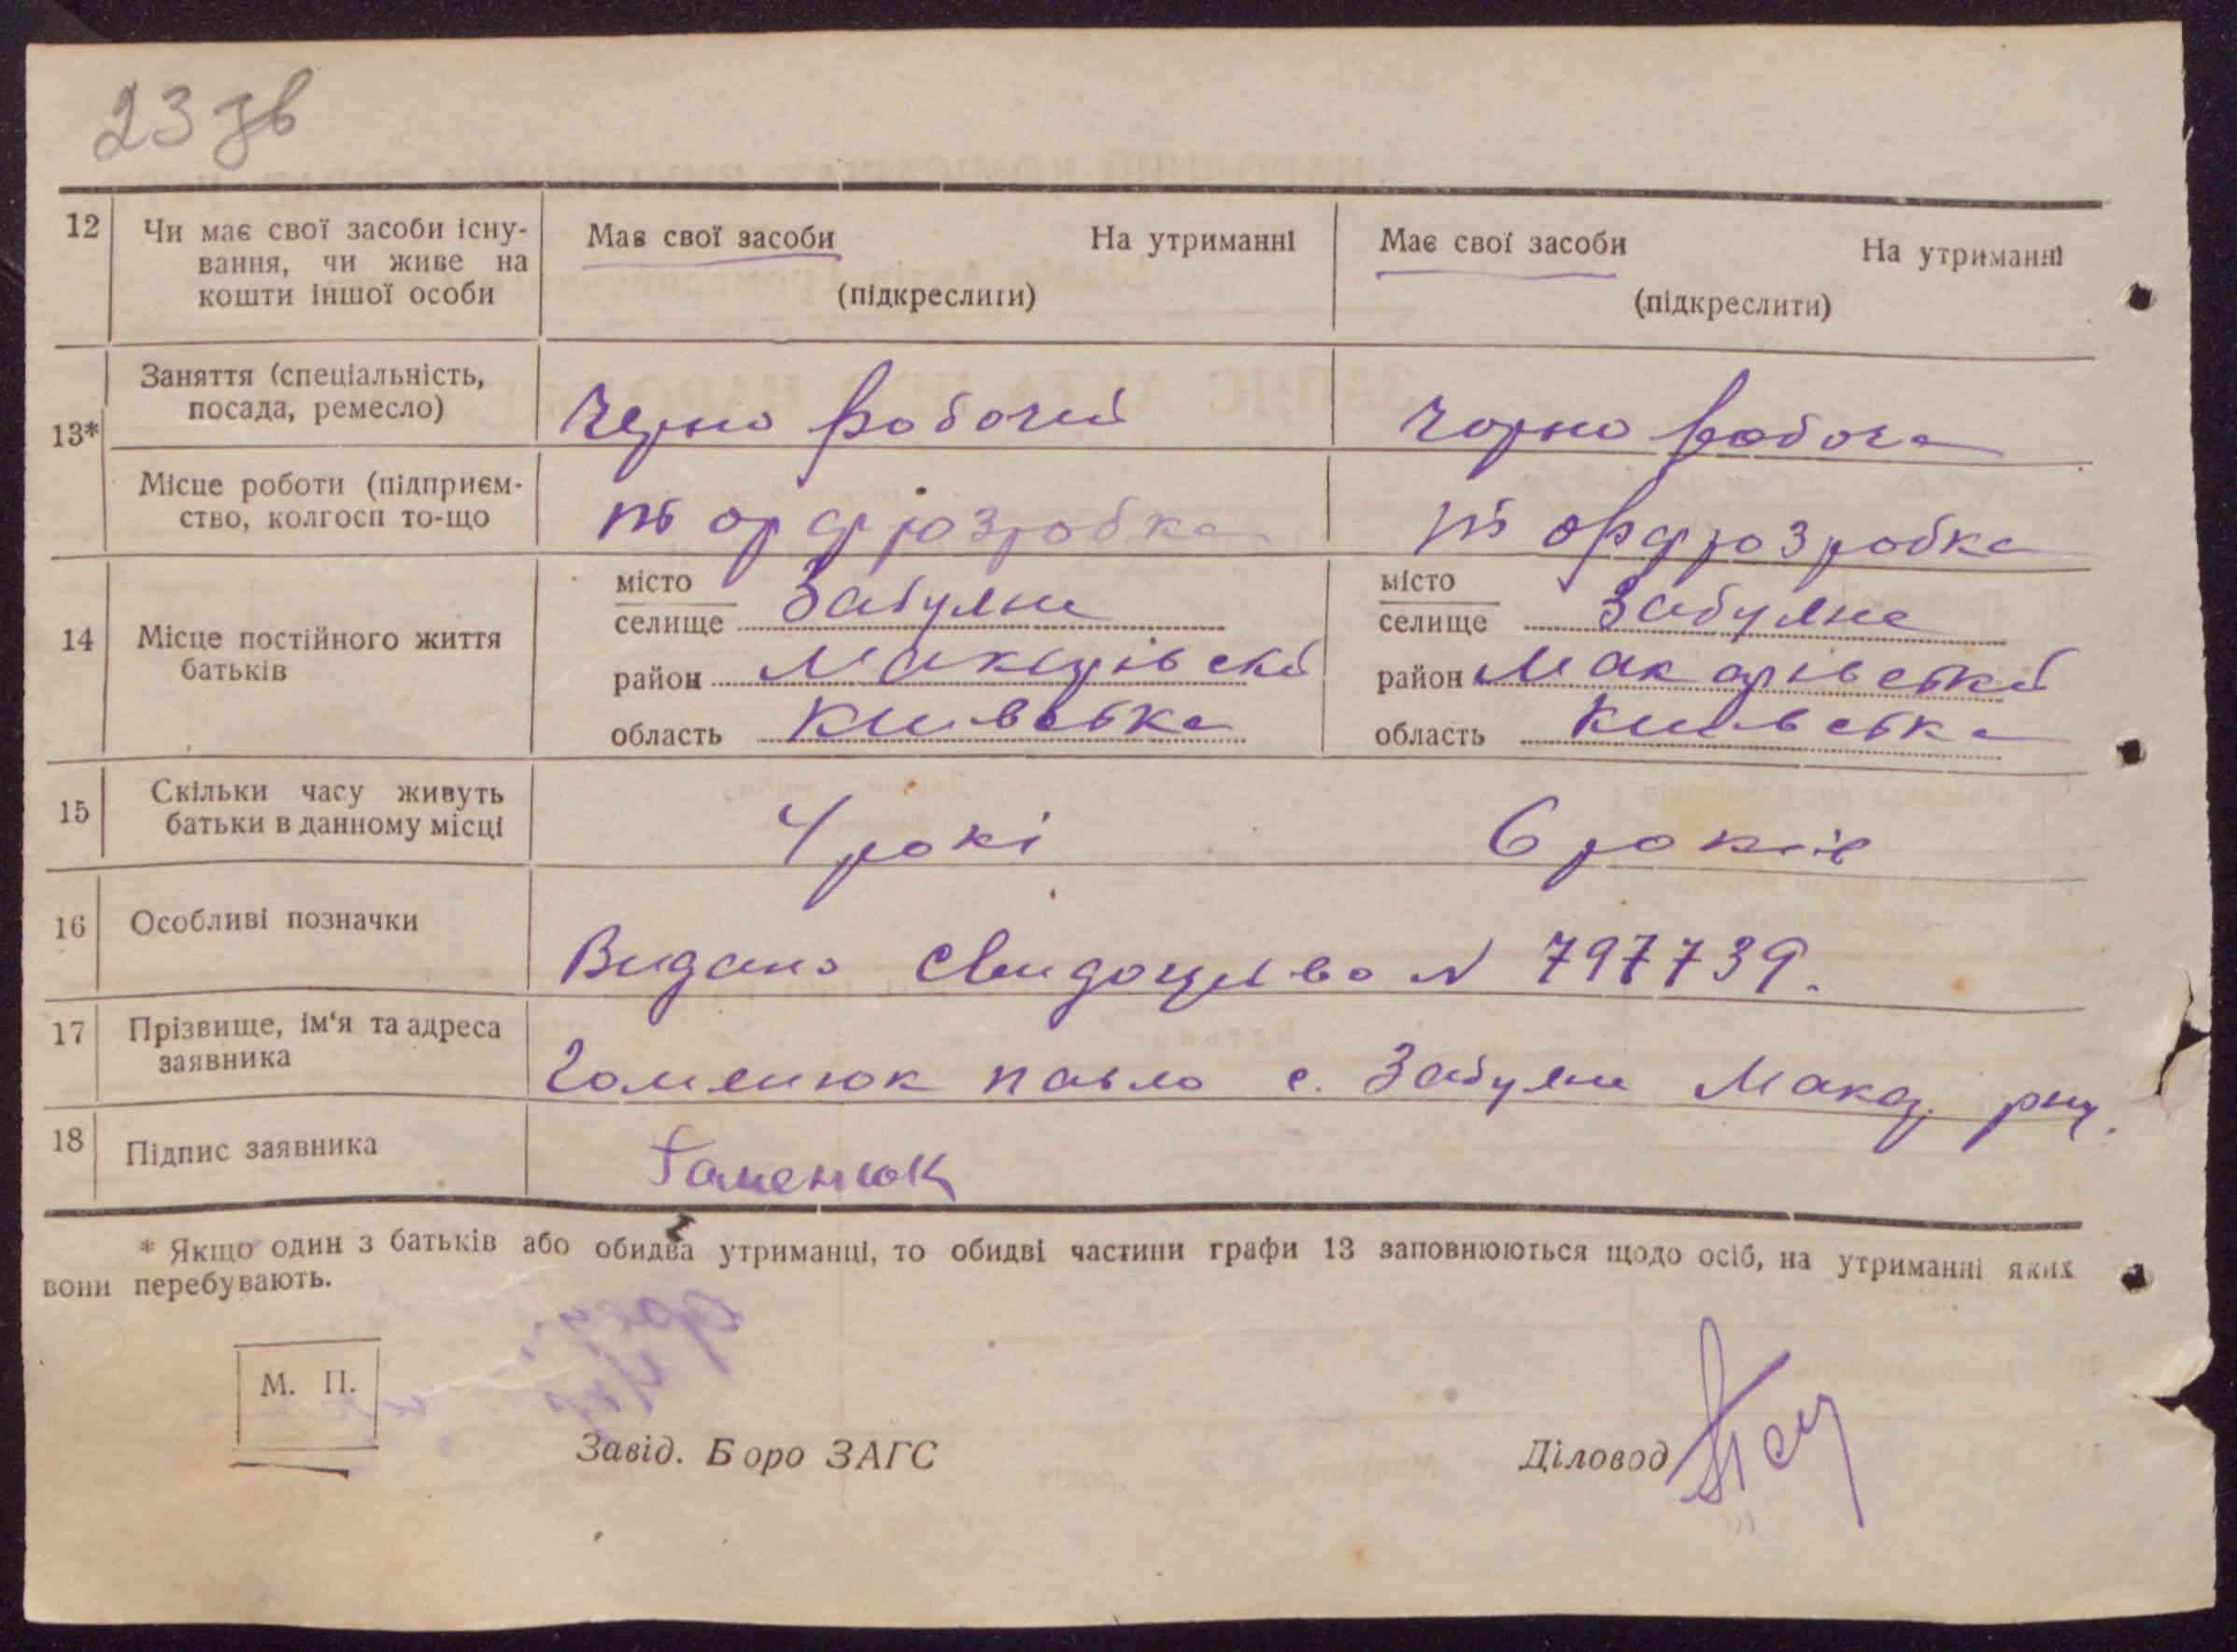 23 зв
12 Чи має свої засоби існу- Має свої засоби На утриманні Має свої засоби На утриманні
вання, чи живе на
кошти іншої особи (підкреслити) (підкреслити)
13* Заняття (спеціальність,
посада, ремесло) Черно Рабочий Чорно Рабоча
Місце роботи (підприєм-
ство, колгосп то-що торфрозробка торфрозробка
14 Місце постійного життя
батьків
місто
селище Забуяне
район Макарівский
область Київська
місто
селище Забуяне
район Макарівський
область Київська
15 Скільки часу живуть
батьки в данному місці 4 рокі 6 років
16 Особливі позначки Видано Свидоцтво N 797739.
17 Прізвище, ім'я та адреса
заявника Гоменюк Павло с. Забуяне Макар. рну.
18 Підпис заявника Гоменюк
* Якщо один з батьків або обидва утриманці, то обидві частини графи 13 заповнюються щодо осіб, на утриманні яких
вони перебувають.
М. П.
Завід. Бюро ЗАГС Діловод